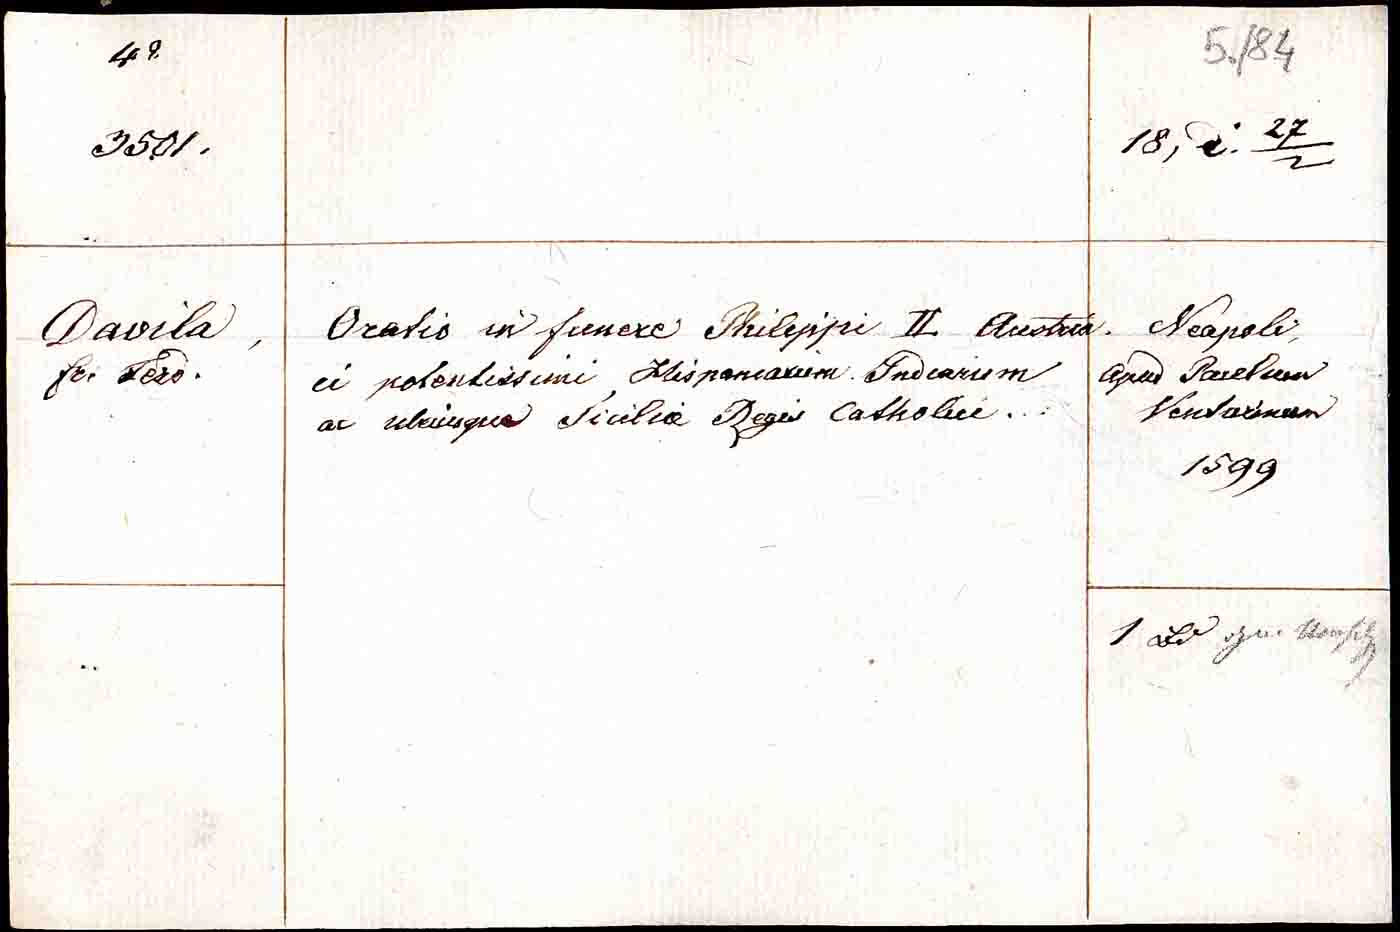 4º
5./84
3501.
18, i. 27
Davila,
fr. Fero.
Oratio in funere Philippi II Austria.
ci potentissimi Hispaniarum Indiarum
ac utriusque Siciliæ Regis Catholici.
Neapoli,
apud Paulum
Venturinum
1599
1 Bd